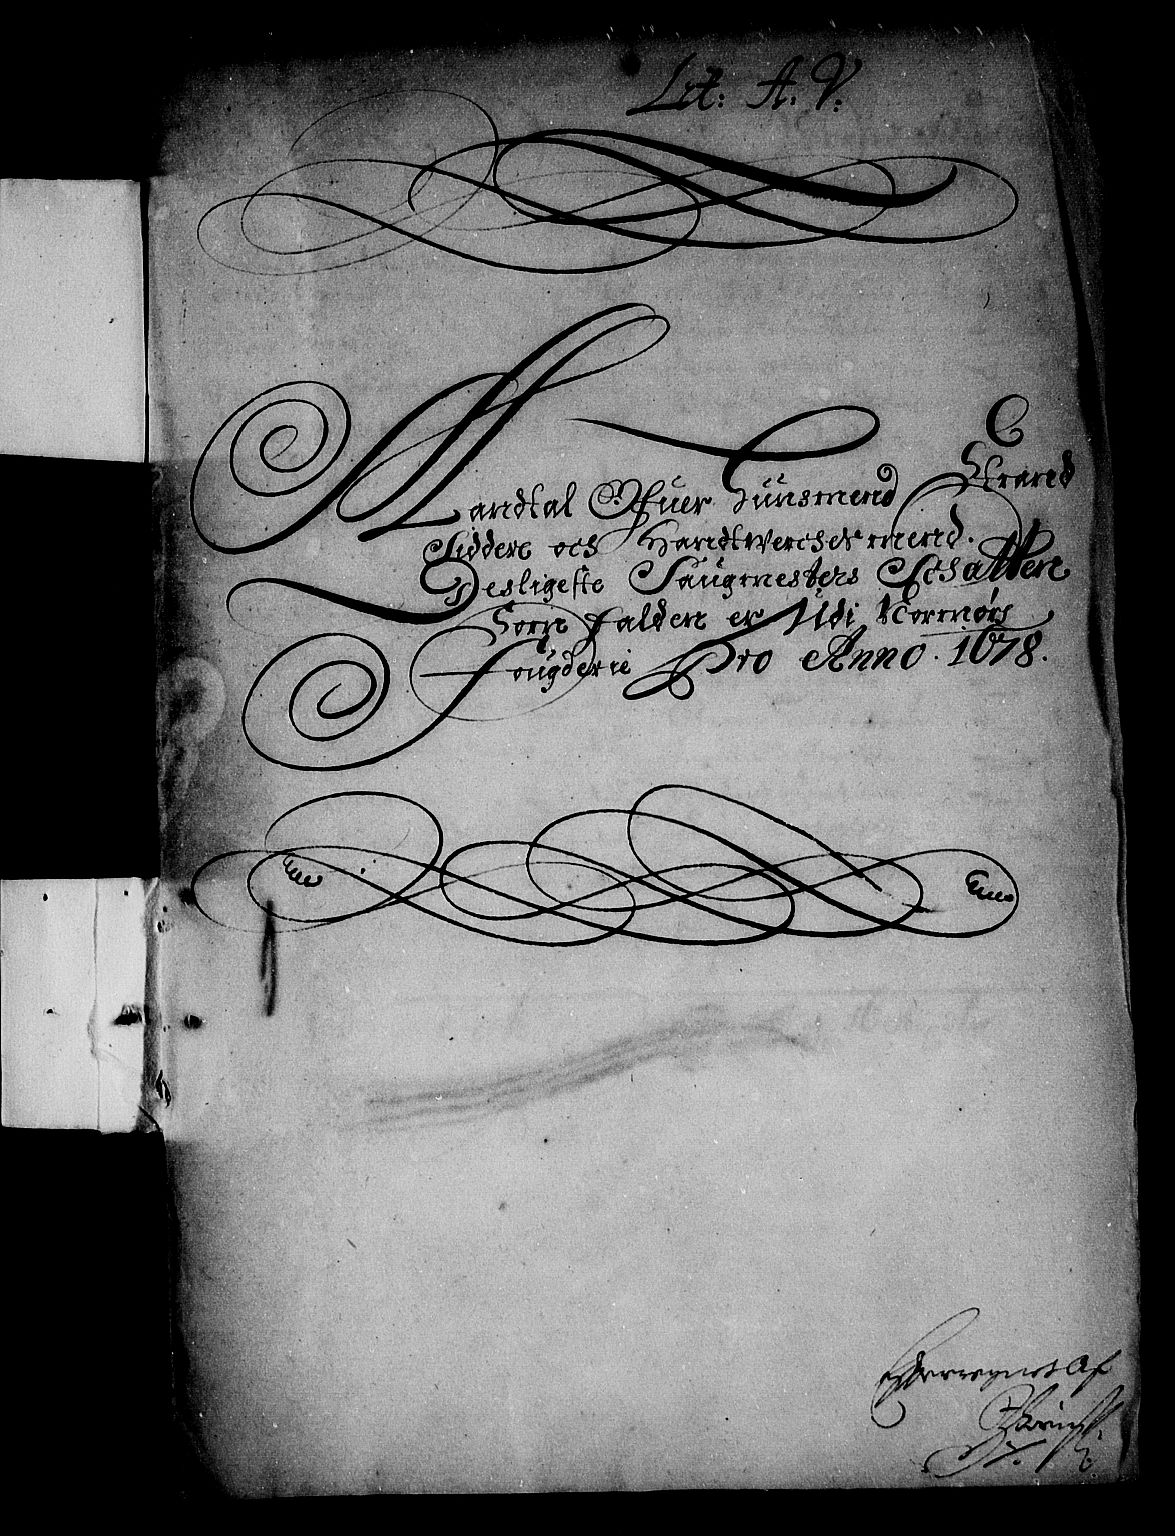 Lit: A. V:
Mandtal Ofuer Huusmend Strand
Siddere och Handtwerchsmend.
Desligeste Saugmesters Schatten
Som falden er Udi Normørs
Fougderie Pro Anno. 1678.